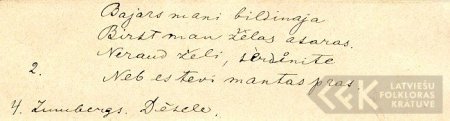 Bajars mani bildinaja
Birst man želas asaras.
Neraud želi, sērdinite
2.
Neb es tevi mantas pras.
4. Zumbergs. Dēsele.
LATVIEŠU
FOLKLORAS
KRĀTUVE